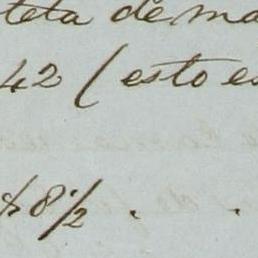 teta de ma
42 (esto es
8½ . .